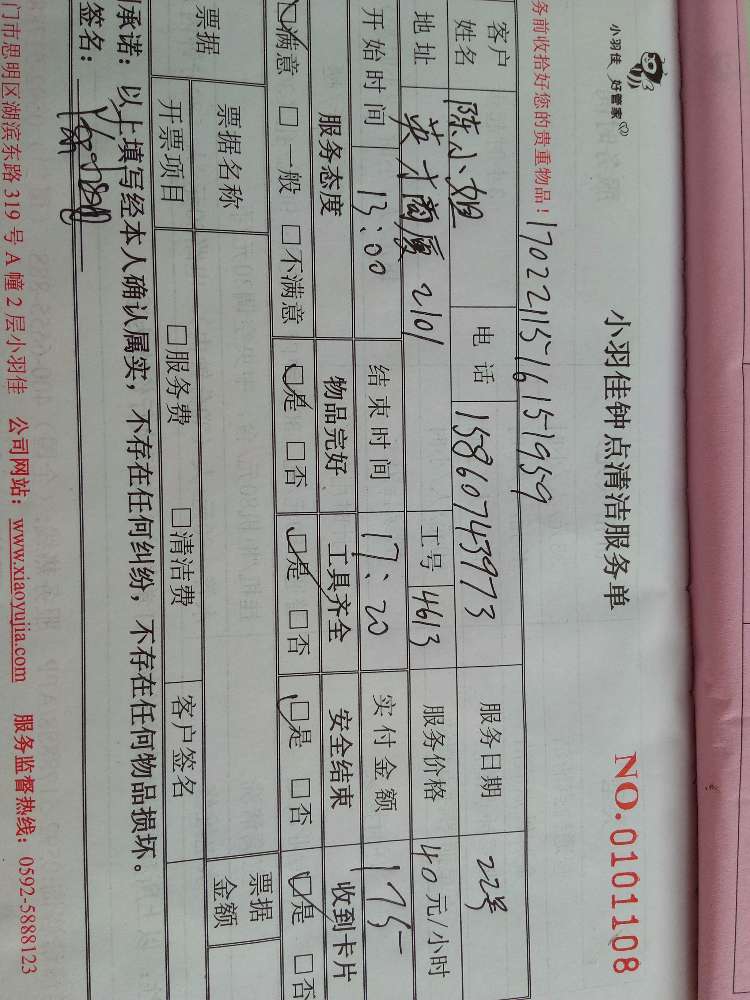 小羽佳 好管家
小羽佳钟点清洁服务单
NO.0101108
务前收拾好您的贵重物品！ 17022115716151959
客户姓名 陈小姐 电话 15860743973 服务日期 22号
地址 英才商厦2101 工号 4613 服务价格 40元/小时
开始时间 13:00 结束时间 17:20 实付金额 175
服务态度 物品完好 工具齐全 安全结束 收到卡片
□满意 □一般 □不满意 □是 □否 □是 □否 □是 □否 □是 □否
票据 票据名称 票据金额
开票项目 □服务费 □清洁费 客户签名
承诺：以上填写经本人确认属实，不存在任何纠纷，不存在任何物品损坏。
签名：
门市思明区湖滨东路319号A幢2层小羽佳 公司网站：www.xiaoyujia.com 服务监督热线：0592-5888123